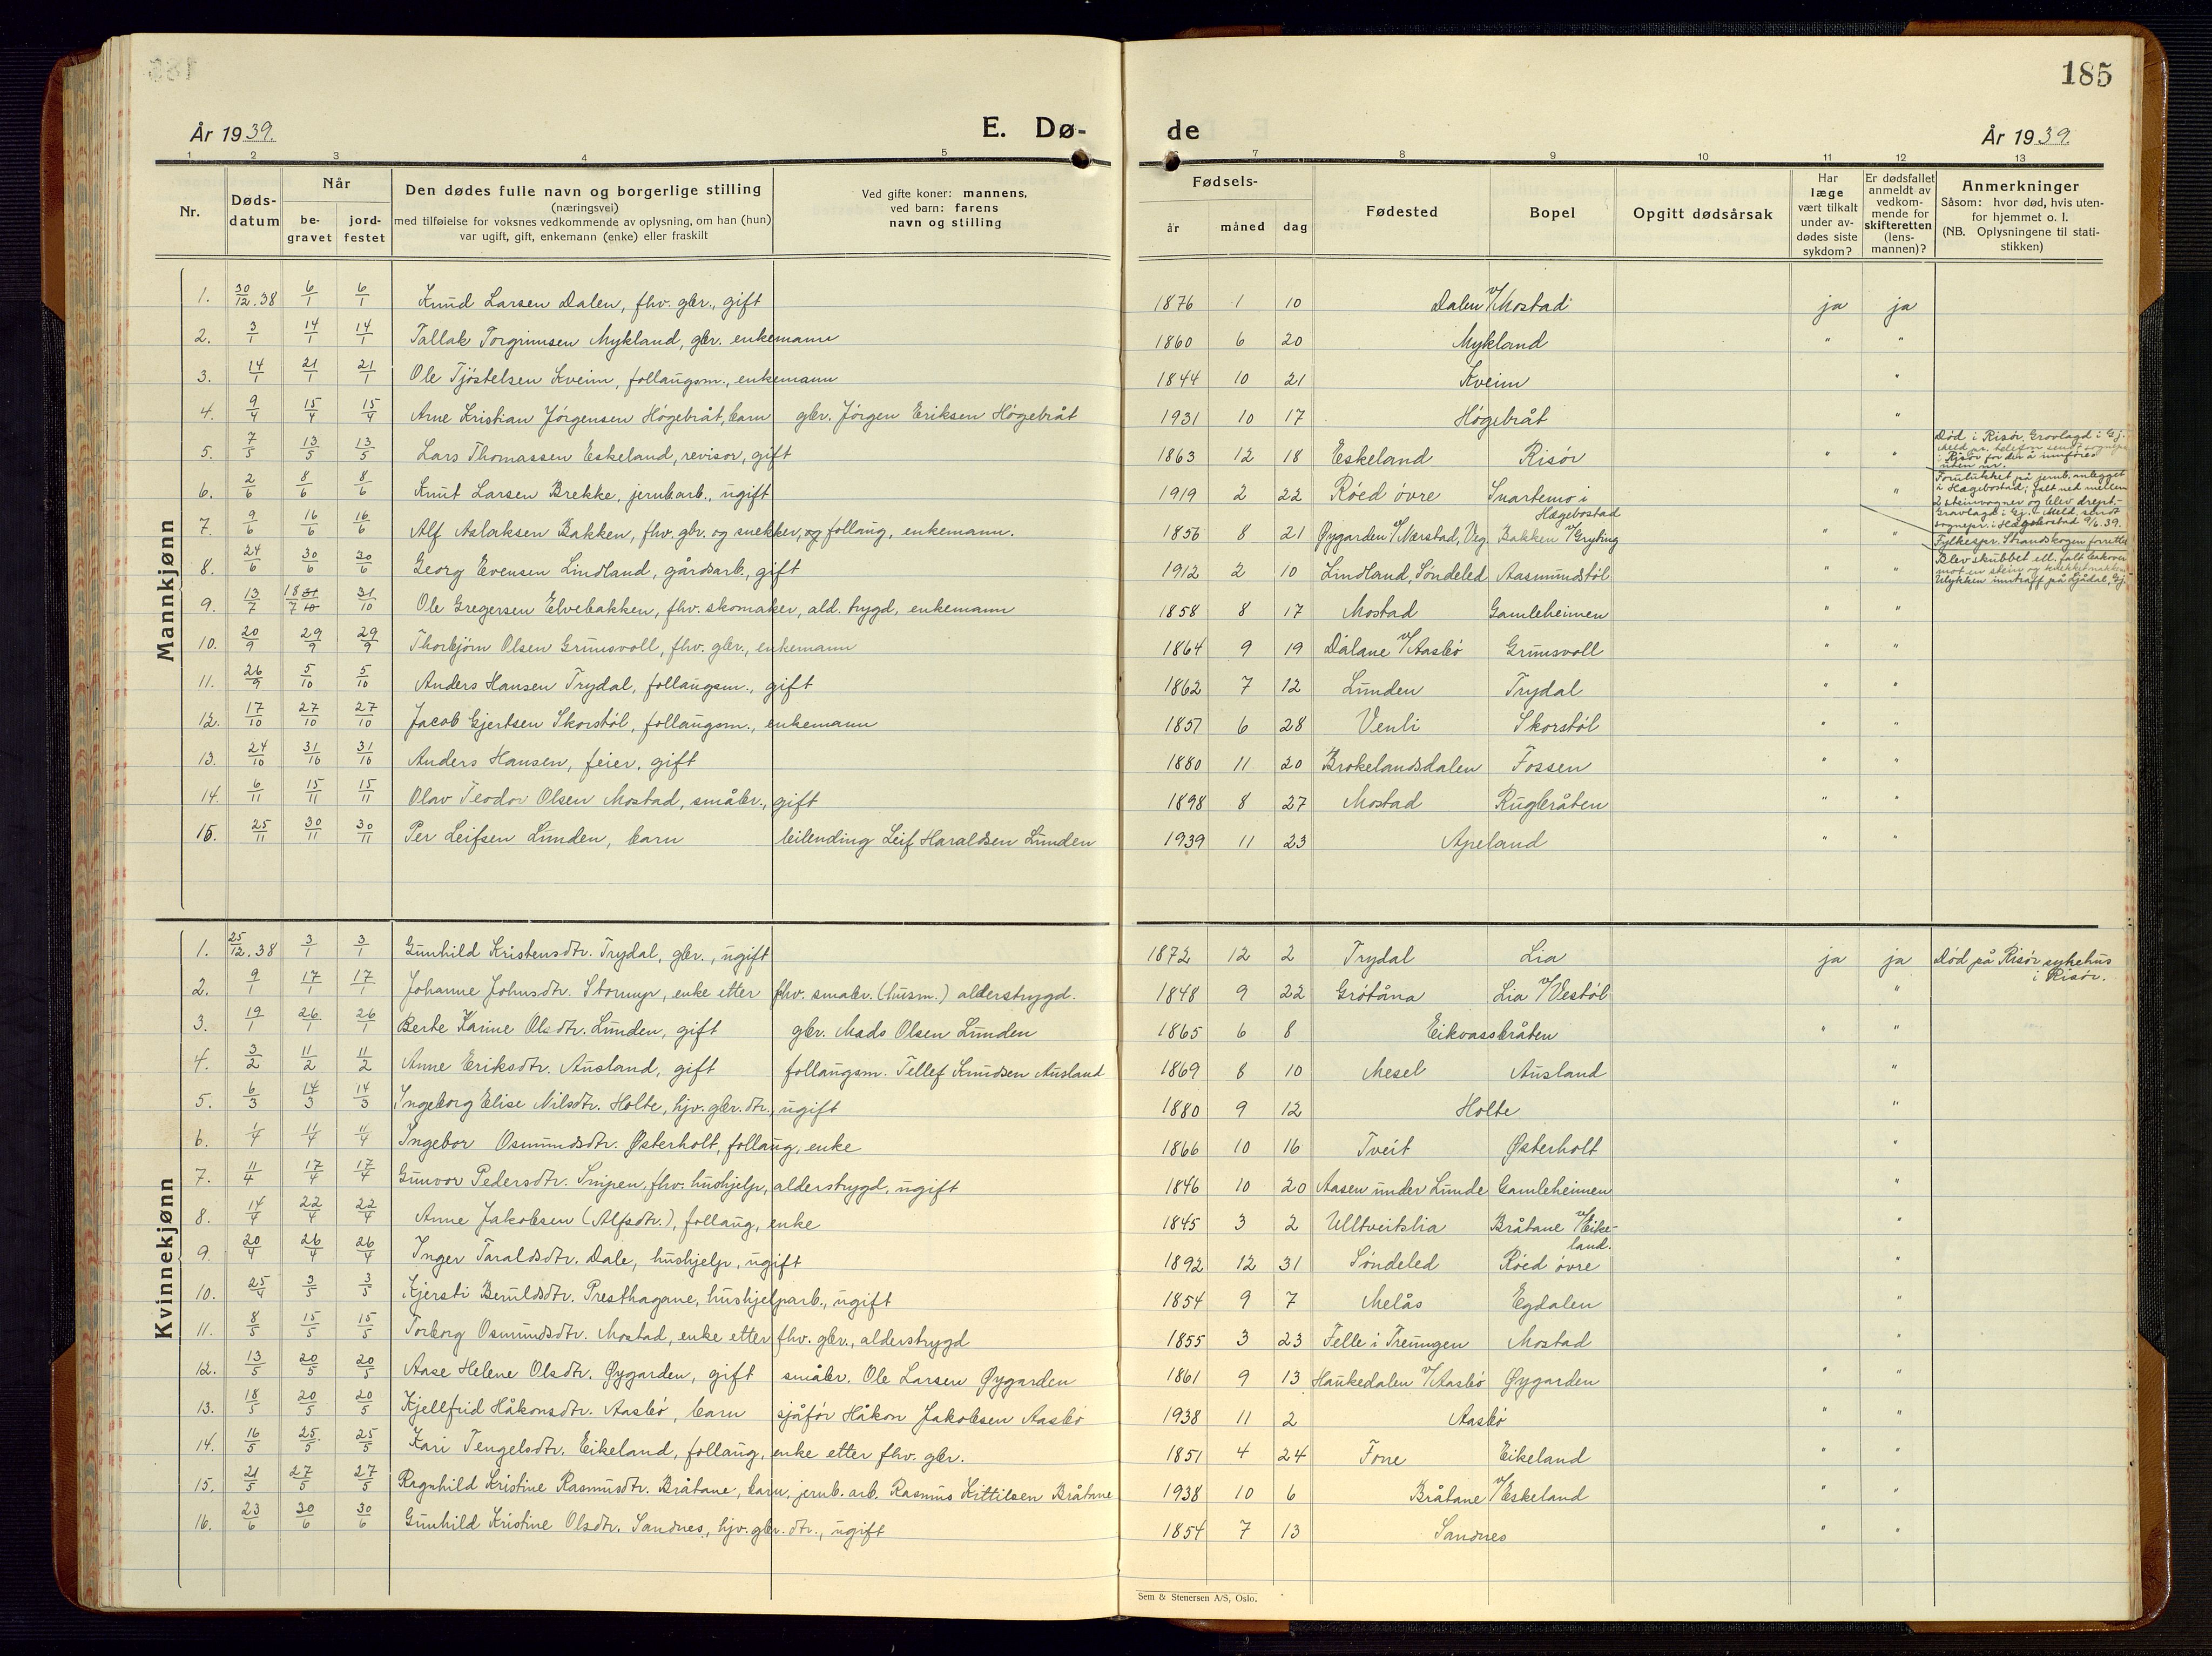 185
År 1939. E. Dø- de År 1939.
1 2 3 4 5 7 8 9 10 11 12 13
Nr. Døds-datum Når be-gravet jord-festet Den dødes fulle navn og borgerlige stilling (næringsvei) med tilføielse for voksnes vedkommende av oplysning, om han (hun) var ugift, gift, enkemann (enke) eller fraskilt Ved gifte koner: mannens, ved barn: farens navn og stilling Fødsels- år måned dag Fødested Bopel Opgitt dødsårsak Har læge vært tilkalt under av-dødes siste sykdom? Er dødsfallet anmeldt av vedkom-mende for skifteretten (lens-mannen)? Anmerkninger Såsom: hvor død, hvis uten-for hjemmet o. l. (NB. Oplysningene til stati-stikken)
Mannkjønn
1. 30/12.38 6/1 6/1 Knud Larsen Dalen, fhv. gbr., gift 1876 1 10 Dalen v/Mostad ja ja
2. 3/1 14/1 14/1 Tallak Torgrimsen Mykland, gbr. enkemann 1860 6 20 Mykland " "
3. 14/1 21/1 21/1 Ole Tjöstelsen Kveim, follaugsm., enkemann 1844 10 21 Kveim "
4. 9/4 15/4 15/4 Arne Kristian Jörgensen Högebråt, barn gbr. Jörgen Eriksen Högebråt 1931 10 17 Högebråt "
5. 7/5 13/5 13/5 Lars Thomassen Eskeland, revisor, gift 1863 12 18 Eskeland Risör " " Död i Risör. Gravlagd i Gj.
6. 2/6 8/6 8/6 Knut Larsen Brekke, jernb.arb., ugift 1919 2 22 Röed övre Snartemo i Hægebostad " Forulukket på jernb.anlegget i Hægebostad; falt ned mellem 2 steinvogner og blev drept. Gravlagd i Gj. Meld. sendt sognepr. i Hægebostad 9/6.39.
7. 9/6 16/6 16/6 Alf Aslaksen Bakken, fhv. gbr. og snekker, og follaug, enkemann. 1856 8 21 Øygarden v/Nærstad, Veg. Bakken v/Gryting " " Fylkespr. Strandskogen forrettet
8. 24/6 30/6 30/6 Georg Evensen Lindland, gårdsarb., gift 1912 2 10 Lindland, Söndeled Aasmundstöl " " Blev skubbet ell. falt bakover mot en stein og
9. 13/7 18/7 31/10 31/10 Ole Gregersen Elvebakken, fhv. skomaker, ald. trygd, enkemann 1858 8 17 Mostad Gamleheimen " "
10. 20/9 29/9 29/9 Thorbjörn Olsen Grimsvoll, fhv. gbr., enkemann 1864 9 19 Dalane v/Aasbö Grimsvoll " "
11. 26/9 5/10 5/10 Anders Hansen Trydal, follaugsm., gift 1862 7 12 Lunden Trydal " "
12. 17/10 27/10 27/10 Jacob Gjertsen Skorstöl, follaugsm., enkemann 1857 6 28 Venli Skorstöl " "
13. 24/10 31/10 31/10 Anders Hansen, feier, gift 1880 11 20 Brokelandsdalen Fossen " "
14. 6/11 15/11 15/11 Olav Teodor Olsen Mostad, småbr., gift 1898 8 27 Mostad Rugbråten " "
15. 25/11 30/11 30/11 Per Leifsen Lunden, barn leilending Leif Haraldsen Lunden 1939 11 23 Apeland " "
Kvinnekjønn
1. 25/12.38 3/1 3/1 Gunhild Kristensdtr. Trydal, gbr., ugift 1872 12 2 Trydal Lia ja ja Död på Risör sykehus i Risör.
2. 9/1 17/1 17/1 Johanne Johnsdtr. Stormyr, enke etter fhv. småbr. (husm.) alderstrygd. 1848 9 22 Grötåna Lia v/Vestöl "
3. 19/1 26/1 26/1 Berte Karine Olsdtr. Lunden, gift gbr. Mads Olsen Lunden 1865 6 8 Eikvassbråten " "
4. 3/2 11/2 11/2 Anne Eriksdtr. Ausland, gift follaugsm. Tellef Knudsen Ausland 1869 8 10 Mesel Ausland "
5. 6/3 14/3 14/3 Ingeborg Elise Nilsdtr. Holte, hjv. gbr. dtr., ugift 1880 9 12 Holte "
6. 1/4 11/4 11/4 Ingebor Osmundsdtr. Østerholt, follaug, enke 1866 10 16 Tveit Østerholt "
7. 11/4 17/4 17/4 Gunvor Pedersdtr. Snipen, fhv. hushjelp, alderstrygd, ugift 1846 10 20 Aasen under Lunde Gamleheimen "
8. 14/4 22/4 22/4 Anne Jakobsen (Alfsdtr.), follaug, enke 1845 3 2 Ulltveitslia Bråtane v/Eike-land. "
9. 20/4 26/4 26/4 Inger Taraldsdtr. Dale, hushjelp, ugift 1892 12 31 Söndeled Röed övre "
10. 25/4 3/5 3/5 Kjersti Beruldsdtr. Presthagane, hushjelparb., ugift 1854 9 7 Melås Egdalen "
11. 8/5 15/5 15/5 Torborg Osmundsdtr. Mostad, enke etter fhv. gbr., alderstrygd 1855 3 23 Felle i Treungen Mostad "
12. 13/5 20/5 20/5 Aase Helene Olsdtr. Øygarden, gift småbr. Ole Larsen Øygarden 1861 9 13 Haukedalen v/Aasbö Øygarden " "
13. 18/5 20/5 20/5 Kjellfrid Håkonsdtr. Aasbö, barn sjåför Håkon Jakobsen Aasbö 1938 11 2 Aasbö " "
14. 16/5 25/5 25/5 Kari Tengelsdtr. Eikeland, follaug, enke etter fhv. gbr. 1851 4 24 Fone Eikeland " "
15. 21/5 27/5 27/5 Ragnhild Kristine Rasmusdtr. Bråtane, barn, jernb. arb. Rasmus Kittilsen Bråtane 1938 10 6 Bråtane v/Eskeland " "
16. 23/6 30/6 30/6 Gunhild Kristine Olsdtr. Sandnes, hjv. gbr. dtr., ugift 1854 7 13 Sandnes " "
Sem & Stenersen A/S, Oslo.